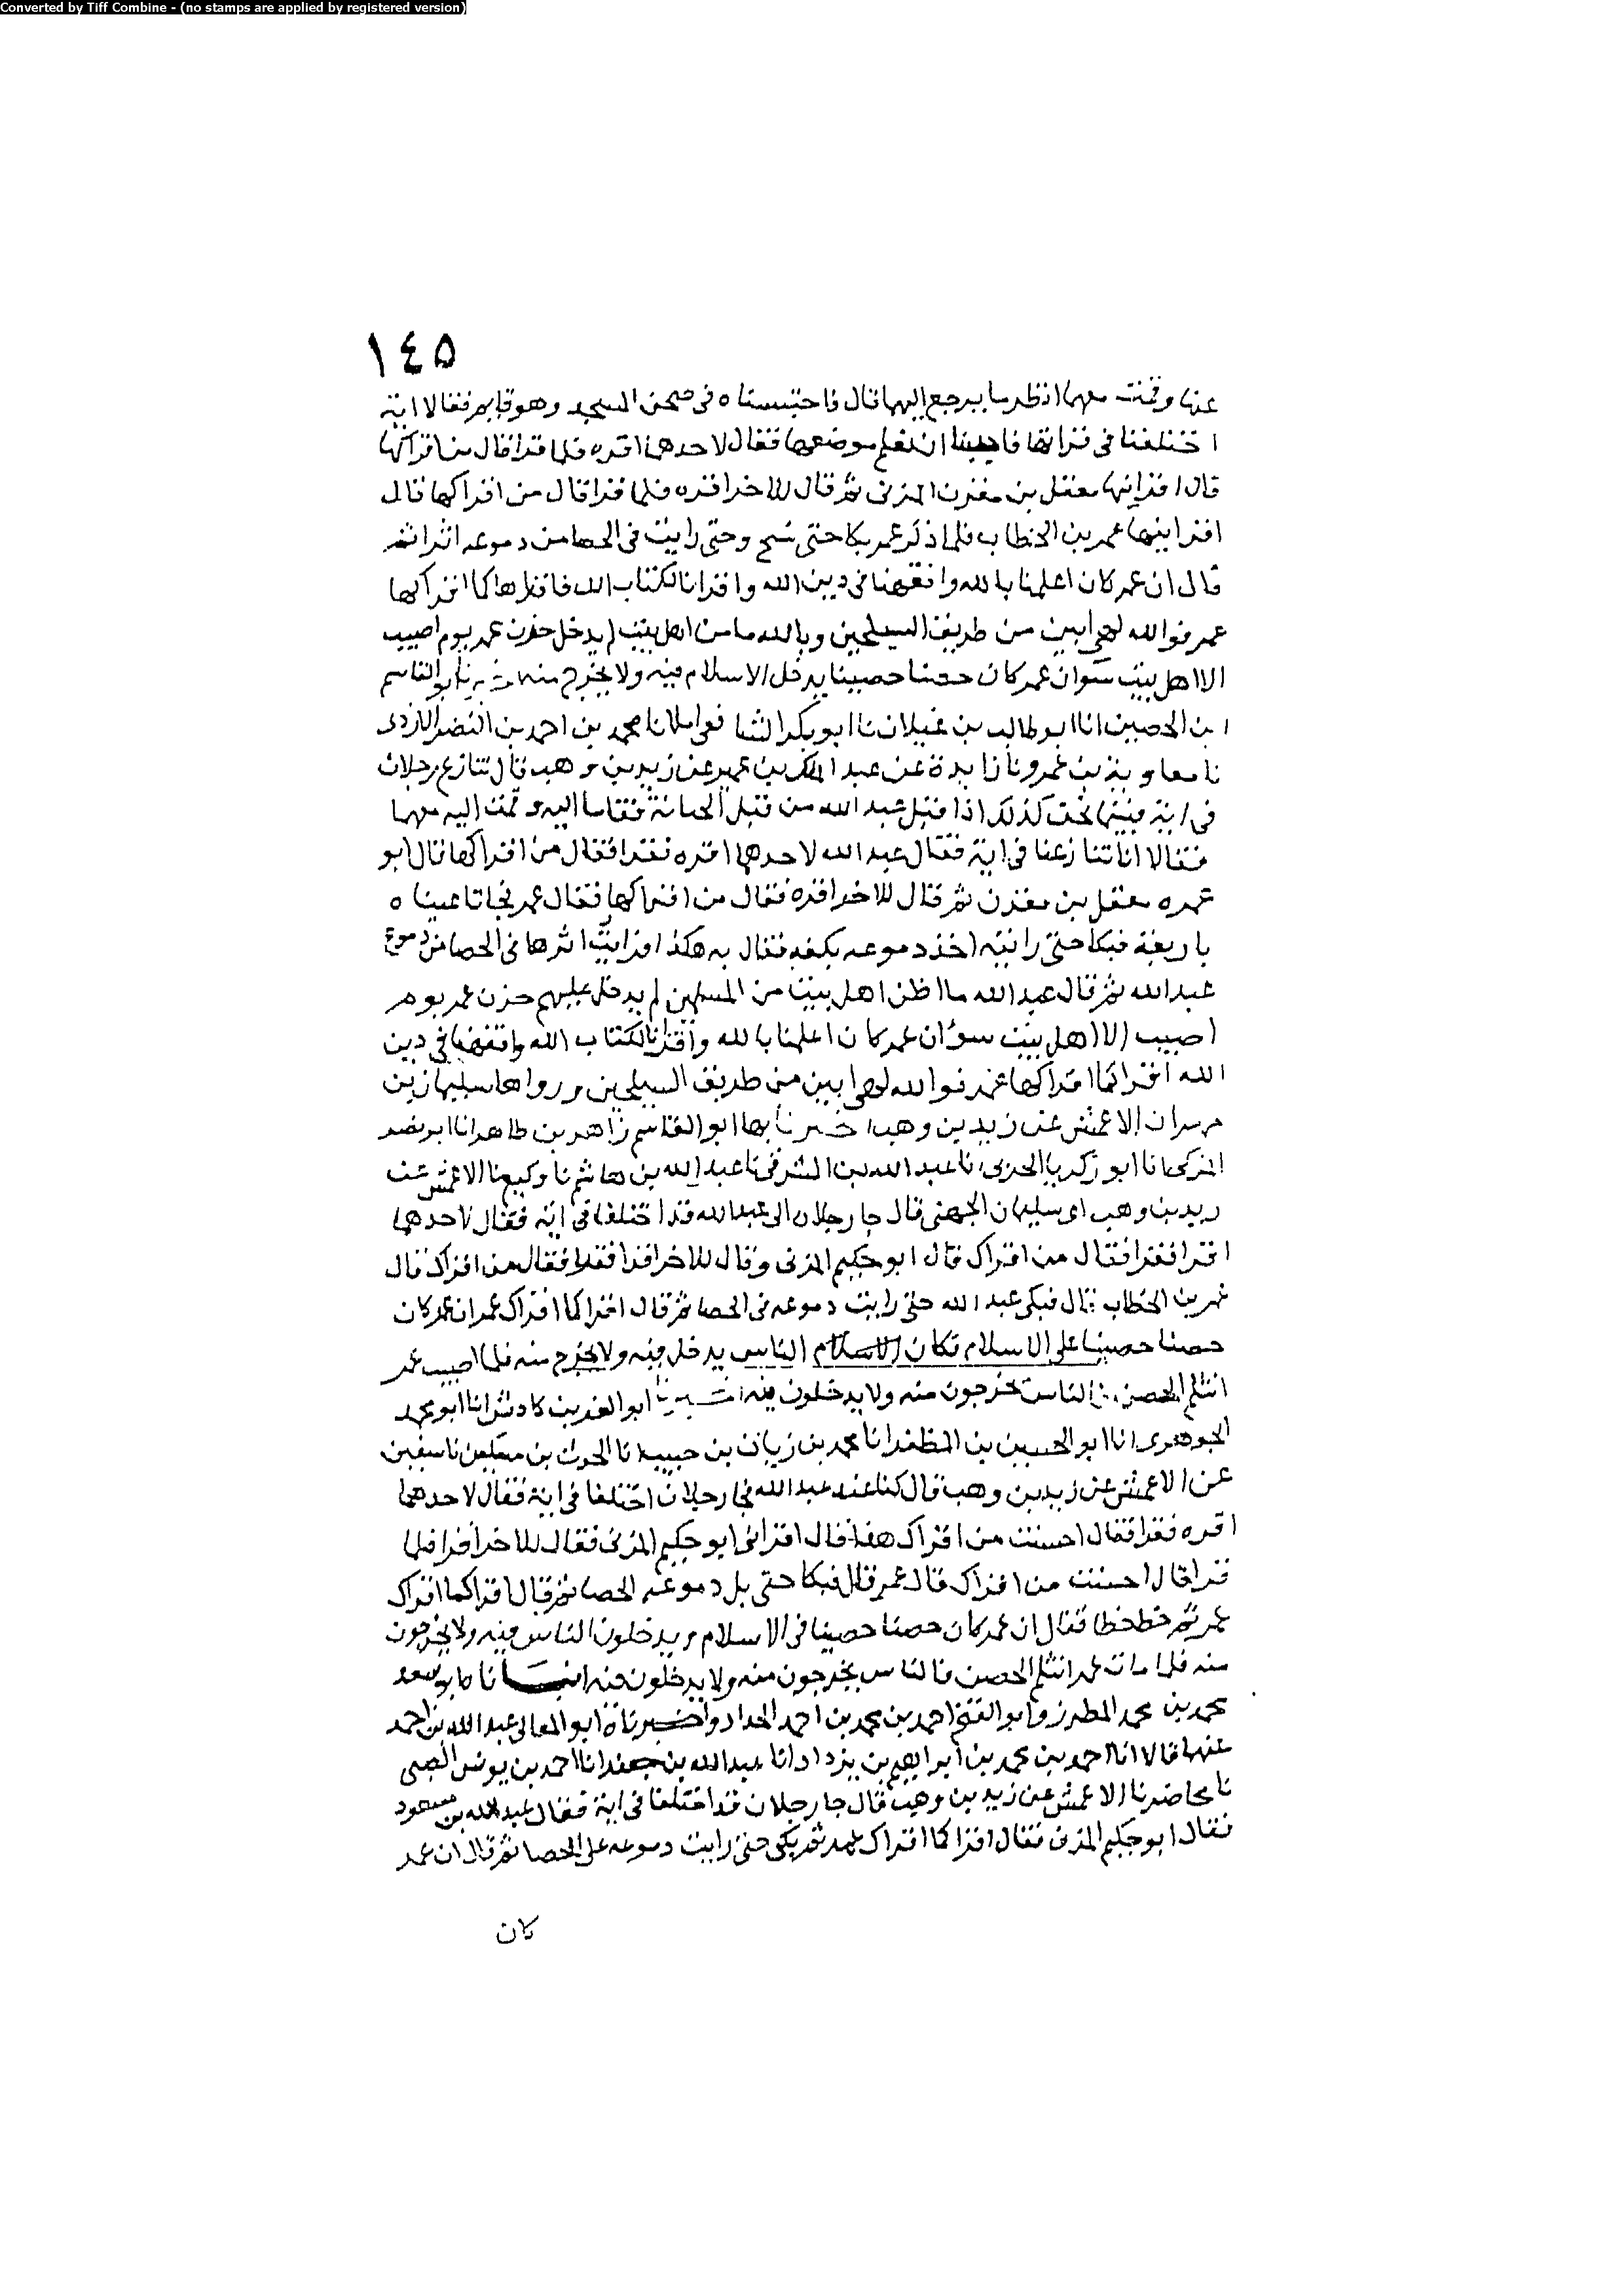 Converted by Tiff Combine - (no stamps are applied by registered version)
١٤٥
عنها وقمت معهما انظر ما يرجع إليهما قال فاحتبسناه في صحن المسجد وهو قايم فقالا اية
اختلفنا في قراتها فاحببنا ان نعلم موضعها فقال لاحدهما اقره فلما قرا قال من اقراكها
قال اقرانيها معقل بن مقرن المزني ثم قال للاخر اقره فلما قرا قال من اقراكها قال
اقرانيها عمر بن الخطاب فلما ذكر عمر بكا حتى نشج وحتى رايت في الحصا من دموعه اثرا ثم
قال ان عمر كان اعلمنا بالله وافقهنا في دين الله واقرانا لكتاب الله فاقراها كما اقراكها
عمر فوالله لهي ابين من طريق السيلحين وبالله ما من اهل بيت لم يدخل حزن عمر يوم اصيب
الا اهل بيت سوان عمر كان حصنا حصينا يدخل الاسلام فيه ولا يخرج منه ابو القاسم
ابن الحصين انا ابو طالب بن غيلان نا ابو بكر الشافعي املا نا محمد بن احمد بن النضر الازدي
نا معاوية بن عمرو نا زايدة عن عبد الملك بن عمير عن زيد بن وهب قال تنازع رجلان
في اية فبينما نحن كذلك اذا قبل عبد الله من قبل الجبانة فقاما اليه وقمت اليه معهما
فقالا انا تنازعنا في اية فقال عبد الله لاحدهما اقره فقرا فقال من اقراكها قال ابو
عمره معقل بن مقرن ثم قال للاخر اقره فقال من اقراكها فقال عمر فجاتا عيناه
باربعة فبكا حتى رايته اخذ دموعه بكفه فقال به هكذا فرايت اثرها في الحصا من دموع
عبد الله ثم قال عبد الله ما اظن اهل بيت من المسلمين لم يدخل عليهم حزن عمر يوم
اصيب الا اهل بيت سوان عمر كان اعلمنا بالله واقرانا لكتاب الله وافقهنا في دين
الله اقرا كما اقراكها عمر فوالله لهي ابين من طريق السيلحين ورواها سليمان بن
مهران الاعمش عن زيد بن وهب اخبرنا بها ابو القاسم زاهر بن طاهر انا ابو نصر
المزكي انا ابو زكريا الحربي انا عبد الله بن الشرقي نا عبد الله بن هاشم نا وكيع نا الاعمش عن
زيد بن وهب ابي سليمان الجهني قال جا رجلان الى عبد الله قد اختلفا في اية فقال لاحدهما
اقرا فقرا فقال من اقراك قال ابو حكيم المزني وقال للاخر اقرا فقرا فقال من اقراك قال
عمر بن الخطاب قال فبكى عبد الله حتى رايت دموعه في الحصا ثم قال اقرا كما اقراك عمر ان عمر كان
حصنا حصينا على الاسلام فكان الاسلام الناس يدخل فيه ولا يخرج منه فلما اصيب عمر
انثلم الحصن الناس يخرجون منه ولا يدخلون فيه ابو العز بن كادش انا ابو محمد
الجوهري انا ابو الحسين بن المظفر انا محمد بن زبان بن حبيب انا الحرث بن مسكين نا سفين
عن الاعمش عن زيد بن وهب قال كنا عند عبد الله فجا رجلان اختلفا في اية فقال لاحدهما
اقره فقرا فقال احسنت من اقراك هذا قال اقراني ابو حكيم المزني فقال للاخر اقرا فلما
قرا قال احسنت من اقراك قال عمر قال فبكا حتى بل دموعه الحصا ثم قال اقرا كما اقراك
عمر ثم خط خطا فقال ان عمر كان حصنا حصينا في الاسلام يدخلون الناس فيه ولا يخرجون
منه فلما مات عمر انثلم الحصن فالناس يخرجون منه ولا يدخلون فيه انبانا ابو سعد
محمد بن محمد المطرز وابو الفتح احمد بن محمد بن احمد الحداد واخبرناه ابو المعالي عبد الله بن احمد
عنهما قالا انا احمد بن محمد بن ابراهيم بن يزداد انا عبد الله بن جعفر انا احمد بن يونس الضبي
نا محاضر نا الاعمش عن زيد بن وهب قال جا رجلان قد اختلفا في اية فقال عبد الله بن مسعود
فقال ابو حكيم المزني فقال اقرا كما اقراك عمر ثم بكى حتى رايت دموعه على الحصا ثم قال ان عمر
كان